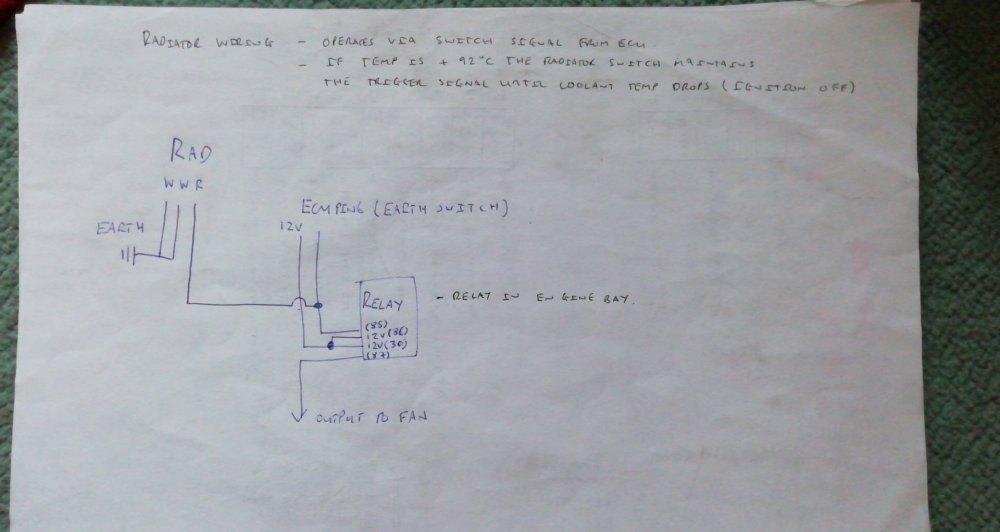 RADIATOR WIRING - OPERATES VIA SWITCH SIGNAL FROM ECU
- IF TEMP IS + 92°C THE RADIATOR SWITCH MAINTAINS
THE TRIGGER SIGNAL UNTIL COOLANT TEMP DROPS (IGNITION OFF)
RAD
W W R
EARTH
ECM PING (EARTH SWITCH)
12V
RELAY
- RELAY IN ENGINE BAY.
(85)
12V(86)
12V(30)
(87)
OUTPUT TO FAN